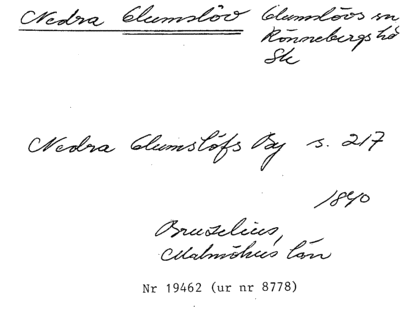 Nedra Glumslöv Glumslövs sn
Rönnebergs hd
Sk
Nedra Glumslöfs By s. 217
1840
Bruzelius,
Malmöhus län
Nr 19462 (ur nr 8778)